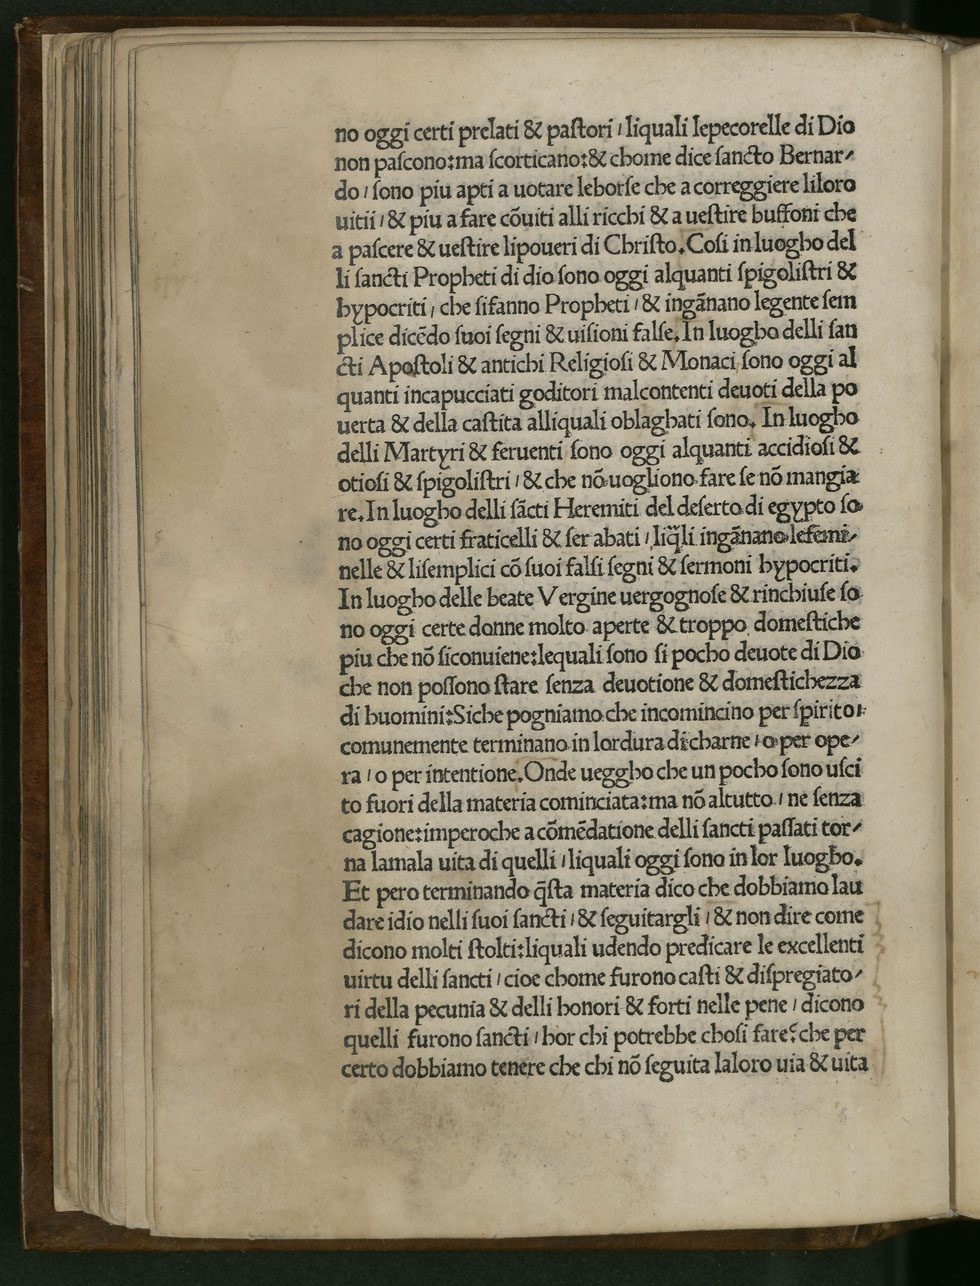 no oggi certi prelati & paſtori / liquali lepecorelle di Dio
non paſcono:ma ſcorticano:& chome dice ſancto Bernar⸗
do / ſono piu apti a uotare leborſe che a correggiere liloro
uitii / & piu a fare cõuiti alli ricchi & a ueſtire buffoni che
a paſcere & ueſtire lipoueri di Chriſto. Coſi in luogho del
li ſancti Propheti di dio ſono oggi alquanti ſpigoliſtri &
hypocriti / che ſifanno Propheti / & ingãnano legente ſem
plice dicẽdo ſuoi ſegni & uiſioni falſe. In luogho delli ſan
cti Apoſtoli & antichi Religioſi & Monaci ſono oggi al
quanti incapucciati goditori malcontenti deuoti della po
uerta & della caſtita alliquali oblaghati ſono. In luogho
delli Martyri & feruenti ſono oggi alquanti accidioſi &
otioſi & ſpigoliſtri / & che nõ uogliono fare ſe nõ mangia
re. In luogho delli ſãcti Heremiti del deſerto di egypto ſo
no oggi certi fraticelli & ſer abati / liq̃li ingãnano lefemi⸗
nelle & liſemplici cõ ſuoi falſi ſegni & ſermoni hypocriti.
In luogho delle beate Vergine uergognoſe & rinchiuſe ſo
no oggi certe donne molto aperte & troppo domeſtiche
piu che nõ ſiconuiene:lequali ſono ſi pocho deuote di Dio
che non poſſono ſtare ſenza deuotione & domeſtichezza
di huomini:Siche pogniamo che incomincino per ſpirito /
comunemente terminano in lordura di charne / o per ope⸗
ra / o per intentione. Onde uegg​ho che un pocho ſono uſci
to fuori della materia cominciata:ma nõ altutto / ne ſenza
cagione:imperoche a cõmẽdatione delli ſancti paſſati tor⸗
na lamala uita di quelli / liquali oggi ſono in lor luogho.
Et pero terminando q̃ſta materia dico che dobbiamo lau
dare idio nelli ſuoi ſancti / & ſeguitargli / & non dire come
dicono molti ſtolti:liquali udendo predicare le excellenti
uirtu delli ſancti / cioe chome furono caſti & diſpregiato⸗
ri della pecunia & delli honori & forti nelle pene / dicono
quelli furono ſancti / hor chi potrebbe choſi fare? che per
certo dobbiamo tenere che chi nõ ſeguita laloro uia & uita